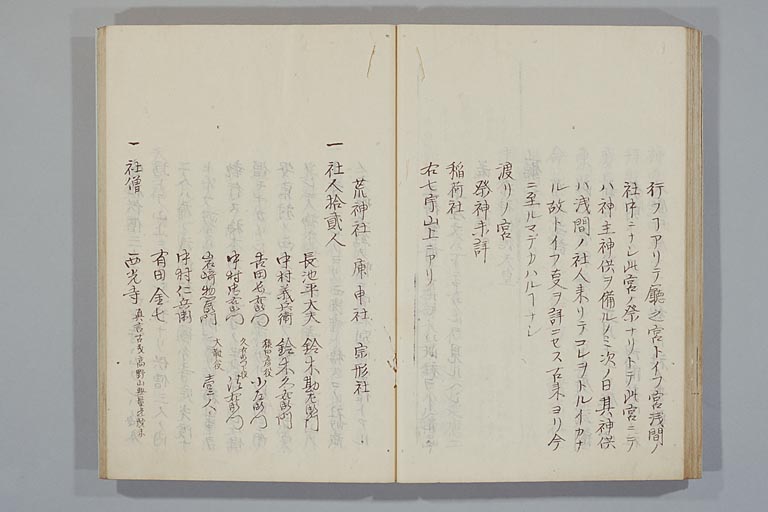 行フヿアリテ廳之宮トイフ宮浅間ノ
社中ニナシ此宮ノ祭ナリトテ此宮ニテ
ハ神主神供ヲ備ルノミ次ノ日其神供
ハ浅間ノ社人来リテコレヲトルイカナ
ル故トイフ夏ヲ詳ニセス古来ヨリ今
ニ至ルマテカハルヿナシ
渡リノ宮
祭神未詳
稲荷社
右七宇山上ニアリ
荒神社 庚申社 宗形社
一 社人拾貳人
長池平大夫 鈴木勘左衛門
中村義兵衛 鈴木久右衛門
吉田七右衛門 小左衛門
中村忠右衛門
岩崎惣右衛門 大鞁役 壹人
中村仁兵衛
有田金七
一 社僧 西光寺 真言古義高野山